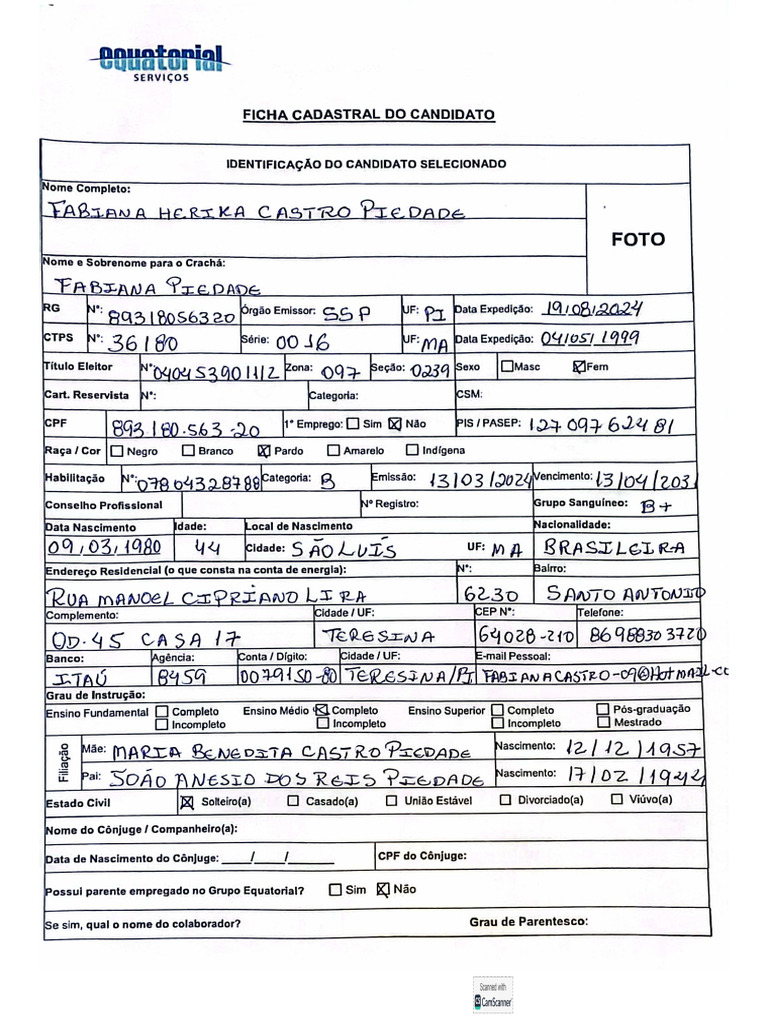 equatorial
SERVIÇOS
FICHA CADASTRAL DO CANDIDATO
IDENTIFICAÇÃO DO CANDIDATO SELECIONADO
Nome Completo:
FABIANA HERIKA CASTRO PIEDADE
FOTO
Nome e Sobrenome para o Crachá:
FABIANA PIEDADE
RG Nº: 89318056320 Órgão Emissor: SSP UF: PI Data Expedição: 19/08/2024
CTPS Nº: 36180 Série: 0016 UF: MA Data Expedição: 04/05/1999
Título Eleitor Nº 040453901112 Zona: 097 Seção: 0239 Sexo Masc Fem
Cart. Reservista Nº: Categoria: CSM:
CPF 893.180.563-20 1º Emprego: Sim Não PIS / PASEP: 12709762481
Raça / Cor Negro Branco Pardo Amarelo Indígena
Habilitação Nº: 07804328788 Categoria: B Emissão: 13/03/2024 Vencimento: 13/04/203
Conselho Profissional Nº Registro: Grupo Sanguíneo: B+
Data Nascimento Idade: Local de Nascimento Nacionalidade:
09/03/1980 44 Cidade: SÃO LUÍS UF: MA BRASILEIRA
Endereço Residencial (o que consta na conta de energia): Nº: Bairro:
RUA MANOEL CIPRIANO LIRA 6230 SANTO ANTONIO
Complemento: Cidade / UF: CEP Nº: Telefone:
QD-45 CASA 17 TERESINA 64028-210 86988303720
Banco: Agência: Conta / Dígito: Cidade / UF: E-mail Pessoal:
ITAÚ 8459 0079150-80 TERESINA/PI FABIANACASTRO-09@HOTMAIL.CO
Grau de Instrução:
Ensino Fundamental Completo Ensino Médio Completo Ensino Superior Completo Pós-graduação
Incompleto Incompleto Incompleto Mestrado
Filiação
Mãe: MARIA BENEDITA CASTRO PIEDADE Nascimento: 12/12/1957
Pai: JOÃO ANESIO DOS REIS PIEDADE Nascimento: 17/02/1944
Estado Civil Solteiro(a) Casado(a) União Estável Divorciado(a) Viúvo(a)
Nome do Cônjuge / Companheiro(a):
Data de Nascimento do Cônjuge: ____/____/________ CPF do Cônjuge:
Possui parente empregado no Grupo Equatorial? Sim Não
Se sim, qual o nome do colaborador? Grau de Parentesco:
Scanned with
CamScanner